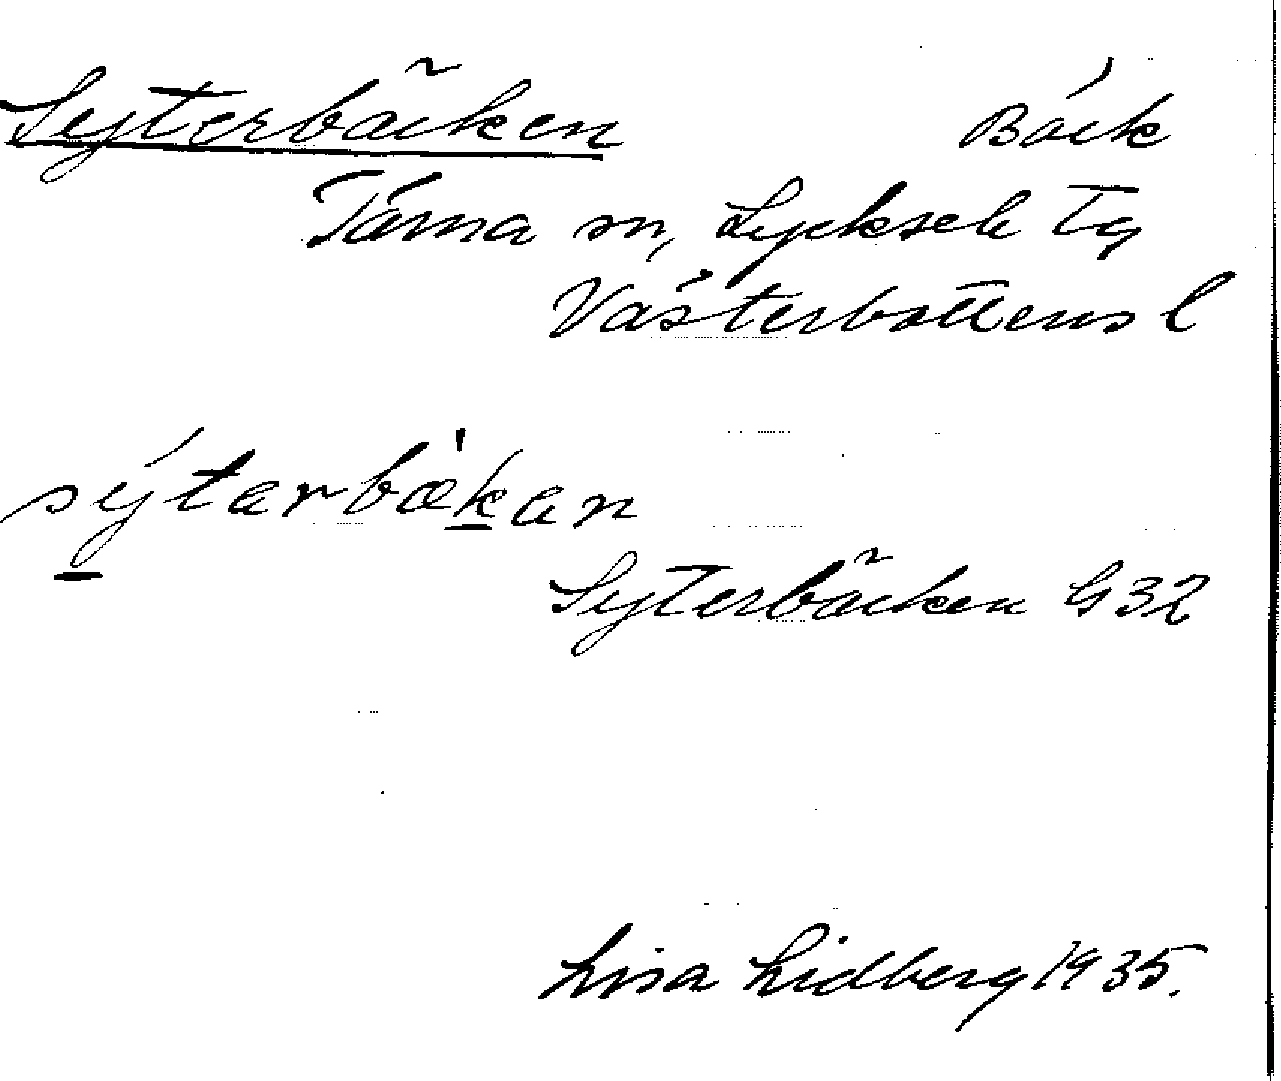 Syterbäcken Bäck
Tärna sn, Lycksele Tg
Västerbottens l
sýtarbækan
Syterbäcken G32
Lisa Lidberg 1935.